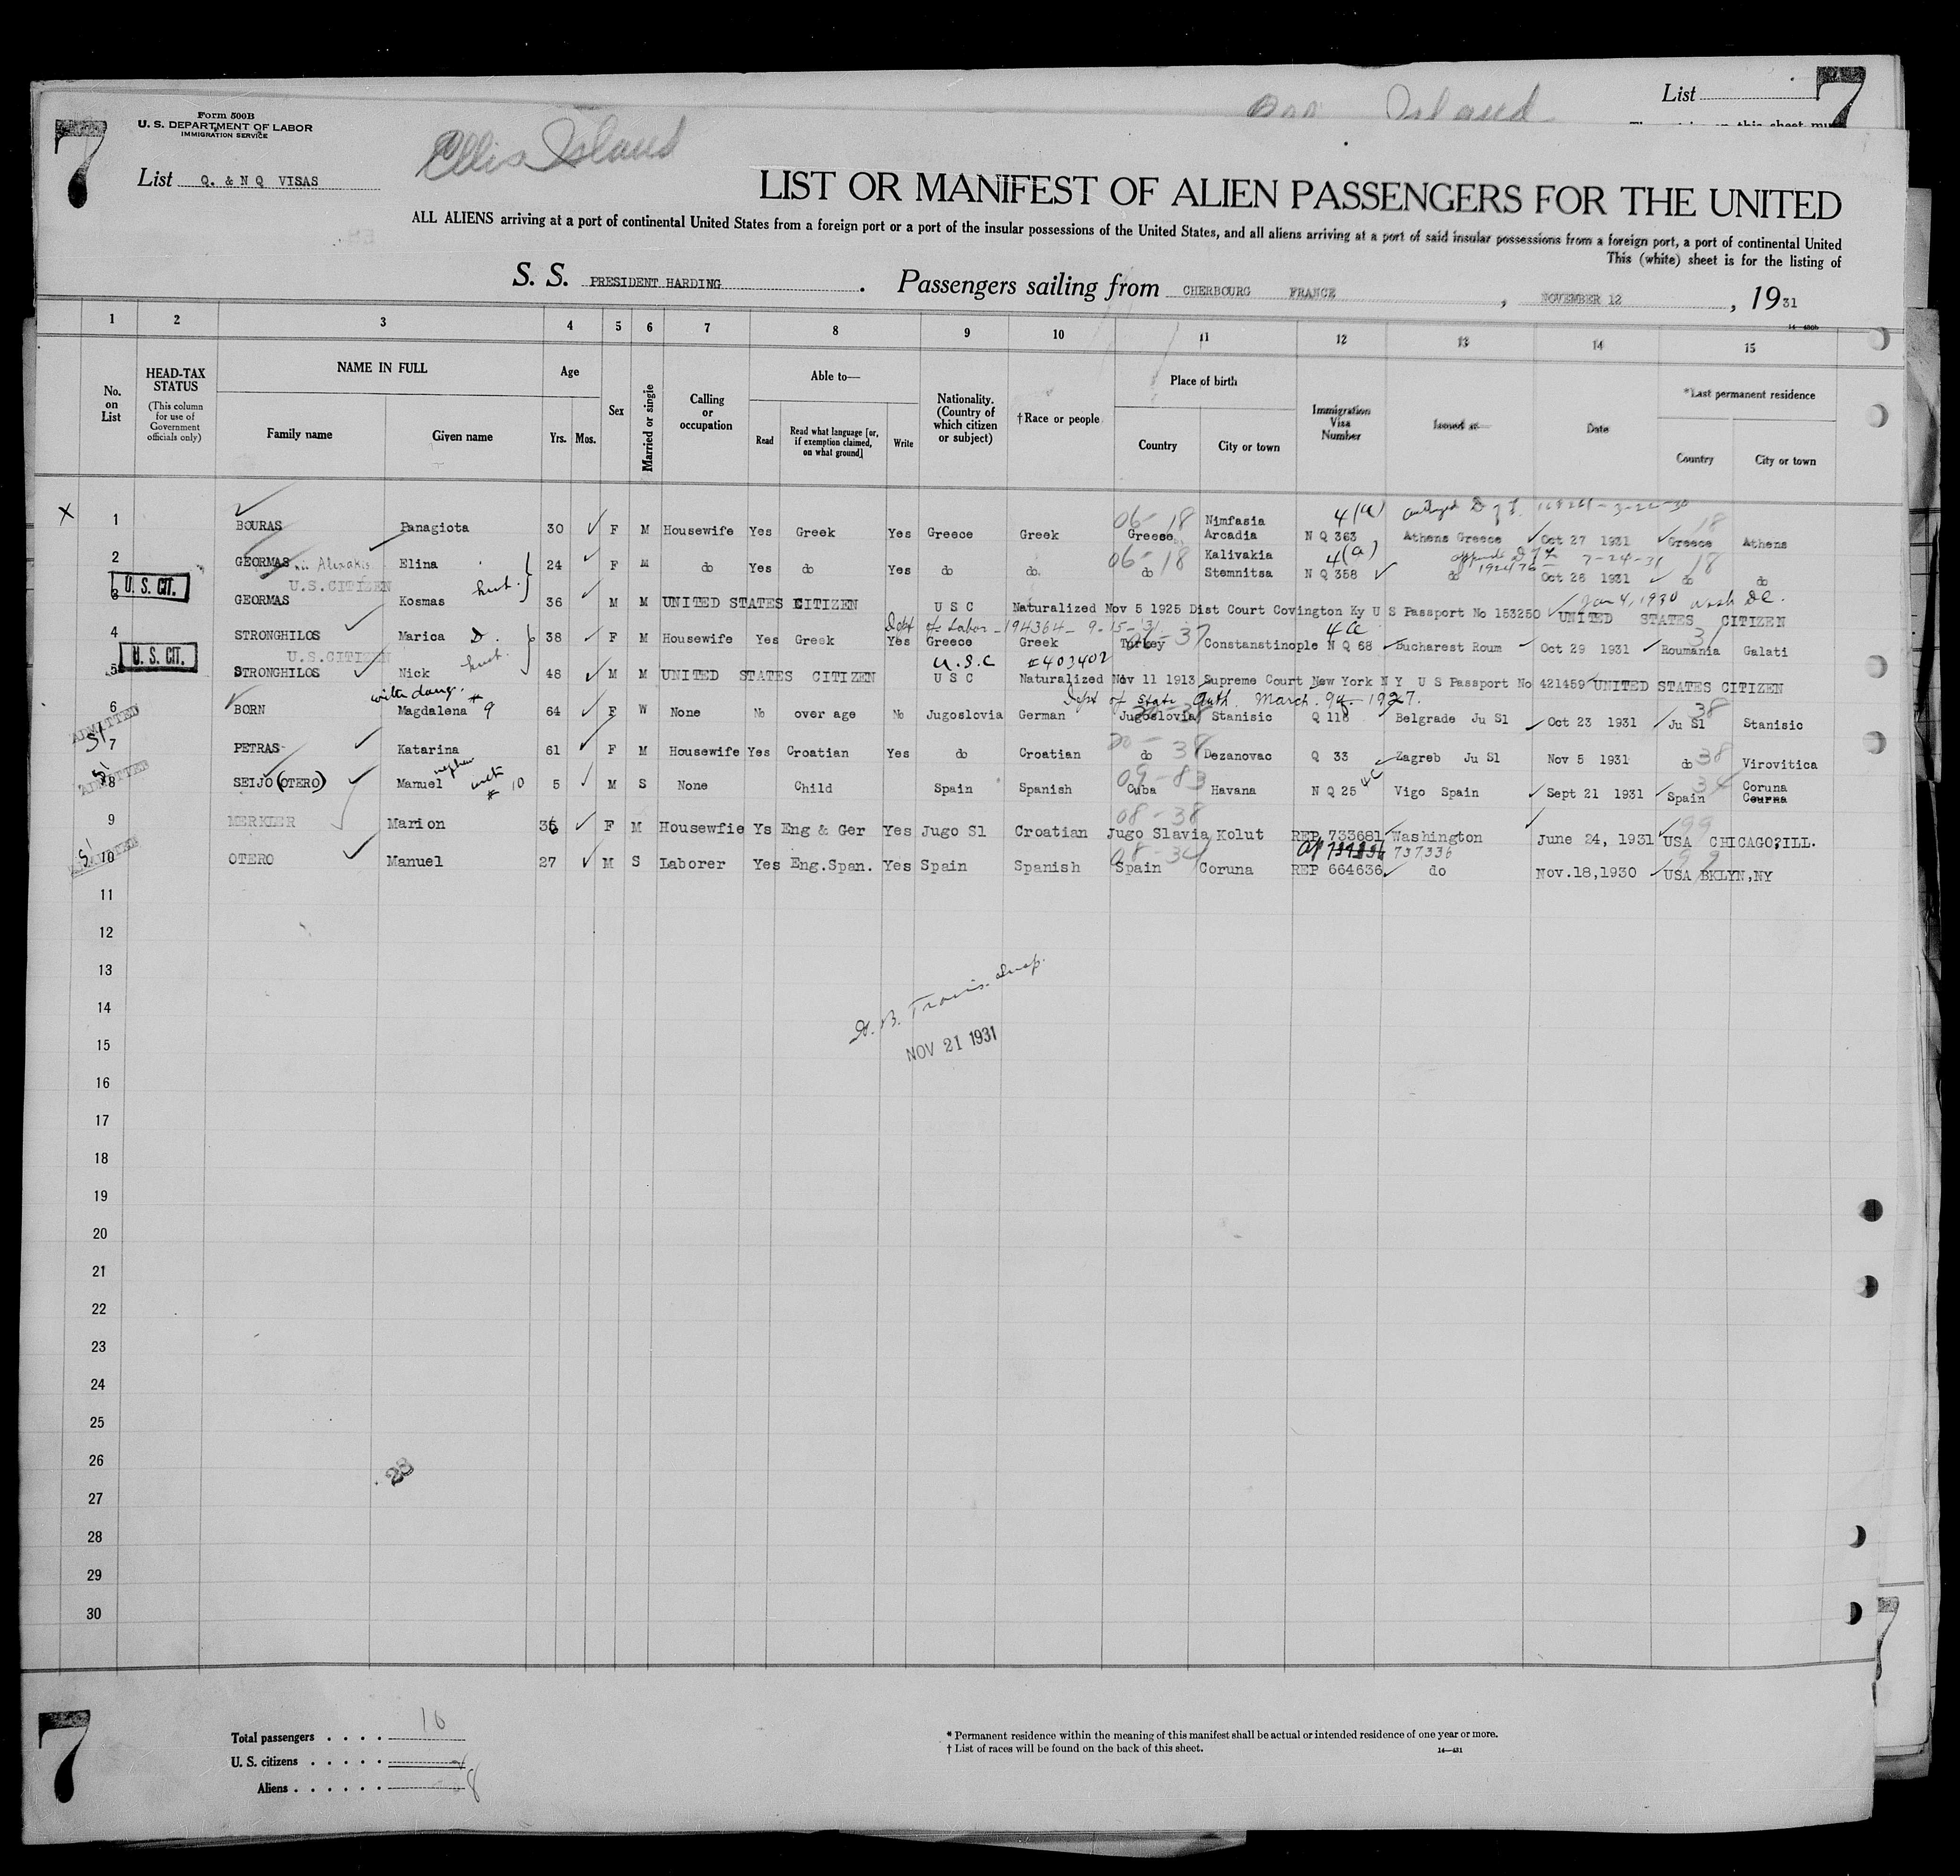 7
Form 500B
U. S. DEPARTMENT OF LABOR
IMMIGRATION SERVICE
List Q. & N Q VISAS
Ellis Island
Island
List
7
LIST OR MANIFEST OF ALIEN PASSENGERS FOR THE UNITED
ALL ALIENS arriving at a port of continental United States from a foreign port or a port of the insular possessions of the United States, and all aliens arriving at a port of said insular possessions from a foreign port, a port of continental United
This (white) sheet is for the listing of
S. S. PRESIDENT HARDING . Passengers sailing from CHERBOURG FRANCE , NOVEMBER 12 , 1931
1 2 3 4 5 6 7 8 9 10 11 12 13 14 15
No. on List
HEAD-TAX STATUS (This column for use of Government officials only)
NAME IN FULL
Family name Given name
Age
Yrs. Mos.
Sex
Married or single
Calling or occupation
Able to—
Read Read what language [or, if exemption claimed, on what ground] Write
Nationality. (Country of which citizen or subject)
†Race or people
Place of birth
Country City or town
Immigration Visa Number
Issued at—
Date
*Last permanent residence
Country City or town
X 1 BOURAS Panagiota 30 F M Housewife Yes Greek Yes Greece Greek 06-18 Greece Nimfasia Arcadia 4(a) N Q 363 Athens Greece Oct 27 1931 18 Greece Athens
2 GEORMAS Elina 24 F M do Yes do Yes do do. 06-18 do Kalivakia Stemnitsa 4(a) N Q 358 do 7-24-31 Oct 26 1931 18 do do
U. S. CIT. U.S.CITIZEN husb.
3 GEORMAS Kosmas 36 M M UNITED STATES CITIZEN U S C Naturalized Nov 5 1925 Dist Court Covington Ky U S Passport No 153250 Jan 4, 1930 Wash DC. UNITED STATES CITIZEN
Dept of Labor - 194364 - 9-15-31
4 STRONGHILOS Marica D. 38 F M Housewife Yes Greek Yes Greece Greek 37 Turkey Constanstinople 4a N Q 68 Bucharest Roum Oct 29 1931 31 Roumania Galati
U. S. CIT. U.S.CITIZEN husb. U.S.C #403402
5 STRONGHILOS Nick 48 M M UNITED STATES CITIZEN U S C Naturalized Nov 11 1913 Supreme Court New York N Y U S Passport No 421459 UNITED STATES CITIZEN
with daug. # 9 Dept of State Auth. March 9 1927.
6 BORN Magdalena 64 F W None No over age No Jugoslovia German Jugoslovia Stanisic Q 118 Belgrade Ju Sl Oct 23 1931 38 Ju Sl Stanisic
ADMITTED SI
7 PETRAS Katarina 61 F M Housewife Yes Croatian Yes do Croatian 38 do Dezanovac Q 33 Zagreb Ju Sl Nov 5 1931 do 38 Virovitica
ADMITTED SI
8 SEIJO (OTERO) Manuel nephew with # 10 5 M S None Child Spain Spanish 09-83 Cuba Havana N Q 25 4c Vigo Spain Sept 21 1931 34 Spain Coruna Courna
9 MERKLER Marion 36 F M Housewfie Ys Eng & Ger Yes Jugo Sl Croatian 08-38 Jugo Slavia Kolut REP 733681 Washington June 24, 1931 99 USA CHICAGO?ILL.
737336
ADMITTED SI
10 OTERO Manuel 27 M S Laborer Yes Eng.Span. Yes Spain Spanish 08-34 Spain Coruna REP 664636 do Nov.18,1930 99 USA BKLYN,NY
11
12
13
14
15
16
17
18
19
20
21
22
23
24
25
26
27
28
29
30
H. B. Travis. Insp.
NOV 21 1931
28
7
Total passengers . . . . 10
U. S. citizens . . . . .
Aliens . . . . . . 8
* Permanent residence within the meaning of this manifest shall be actual or intended residence of one year or more.
† List of races will be found on the back of this sheet.
14—431
7